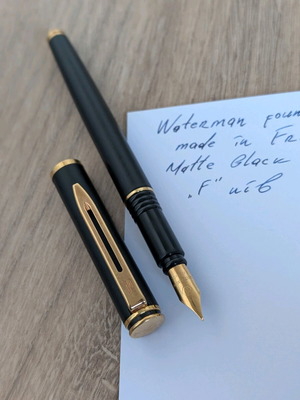 Waterman foun
made in Fr
Matte Black
„F" nib